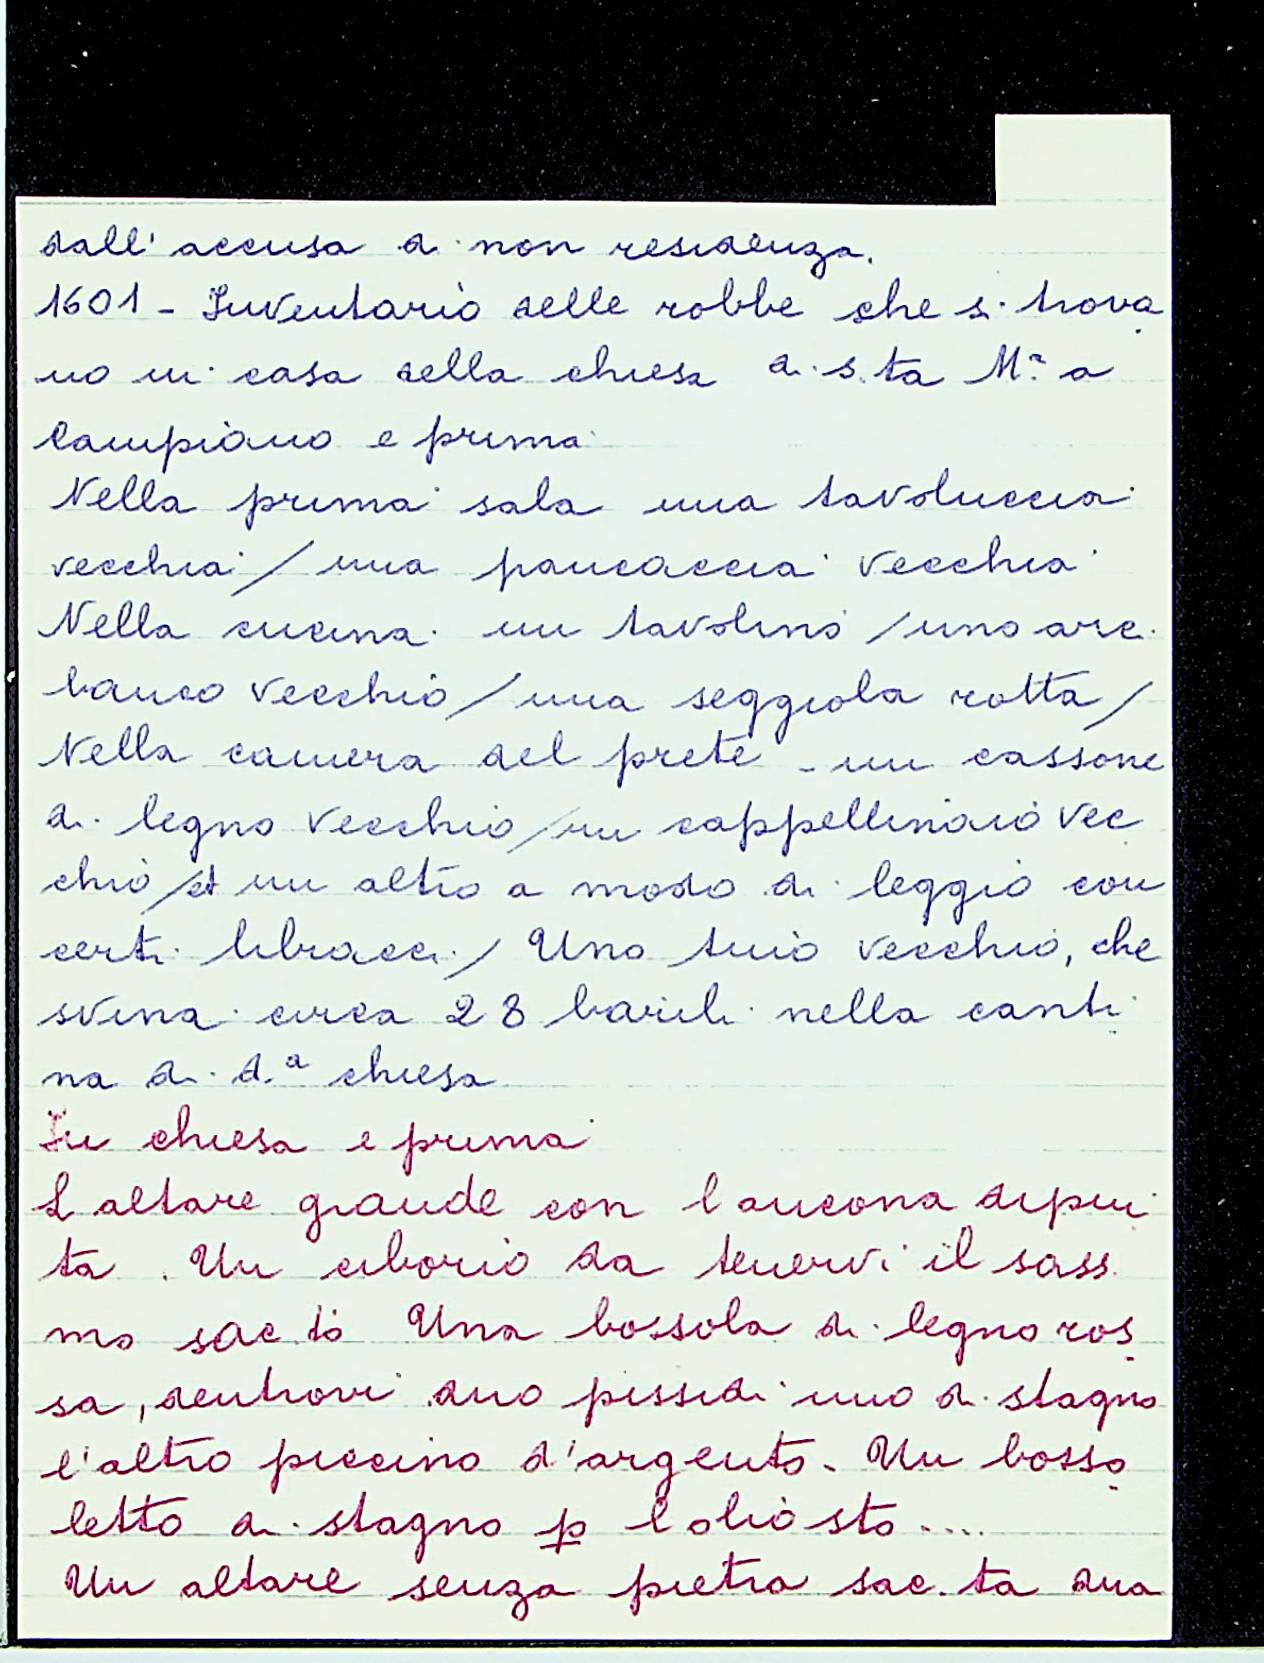 dall'accusa di non residenza.
1601 - Inventario delle robbe che si trova
no in casa della chiesa di s.ta M.a a
Campiano e prima
Nella prima sala una tavoluccia
vecchia / una pancaccia vecchia
Nella cucina un tavolino / uno arc.
banco vecchio / una seggiola rotta /
Nella camera del prete - un cassone
di legno vecchio / un cappellinaio vec
chio / et un altro a modo di leggio con
certi libracci / Uno tino vecchio, che
svina circa 28 barili nella canti
na di d.a chiesa
In chiesa e prima
L altare grande con l ancona dipin
ta. Un ciborio da tenervi il sass.
mo sac.to Una bossola di legno ros
sa, dentrovi duo pissidi uno di stagno
l'altro piccino d'argento. Un bosso
letto di stagno p l olio sto....
Un altare senza pietra sac.ta dua